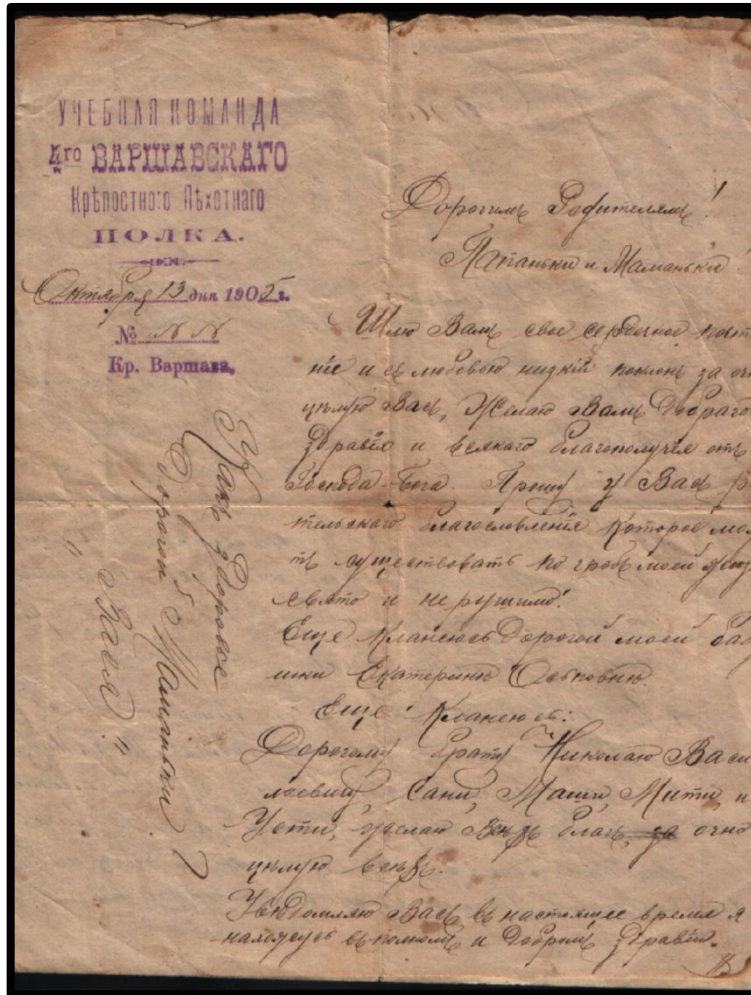 УЧЕБНАЯ КОМАНДА
4го ВАРШАВСКАГО
Крѣпостного Пѣхотнаго
ПОЛКА.
Октября 13 дня 1905 г.
№
Кр. Варшава.
Дорогимъ Родителямъ!
Папаньки и Маманьки!
Шлю Вамъ свое сердечное почт
ніе и съ любовью низкій поклонъ за оч
цѣлую Васъ, Желаю Вамъ Добраго
здравія и всякаго благополучія отъ
Господа Бога. Прошу у Васъ р
тельскаго благословленія Которое мо
тъ существовать по гробъ моей жиз
свято и нерушимо!
Еще Кланеюсь Дорогой моей ба
шки Екатеринѣ Осиповнѣ.
Еще Кланеюсь:
Дорогому брату Николаю Васи
льевичу, Сани, Маши, Мити, и
Усти, благ очно
цѣлую всѣхъ.
Увѣдомляю Васъ въ настоящее время я
нахожусь въ полномъ и добромъ здравіи.
Какъ здоровое
Дорогой Маманьки?
"Васъ"